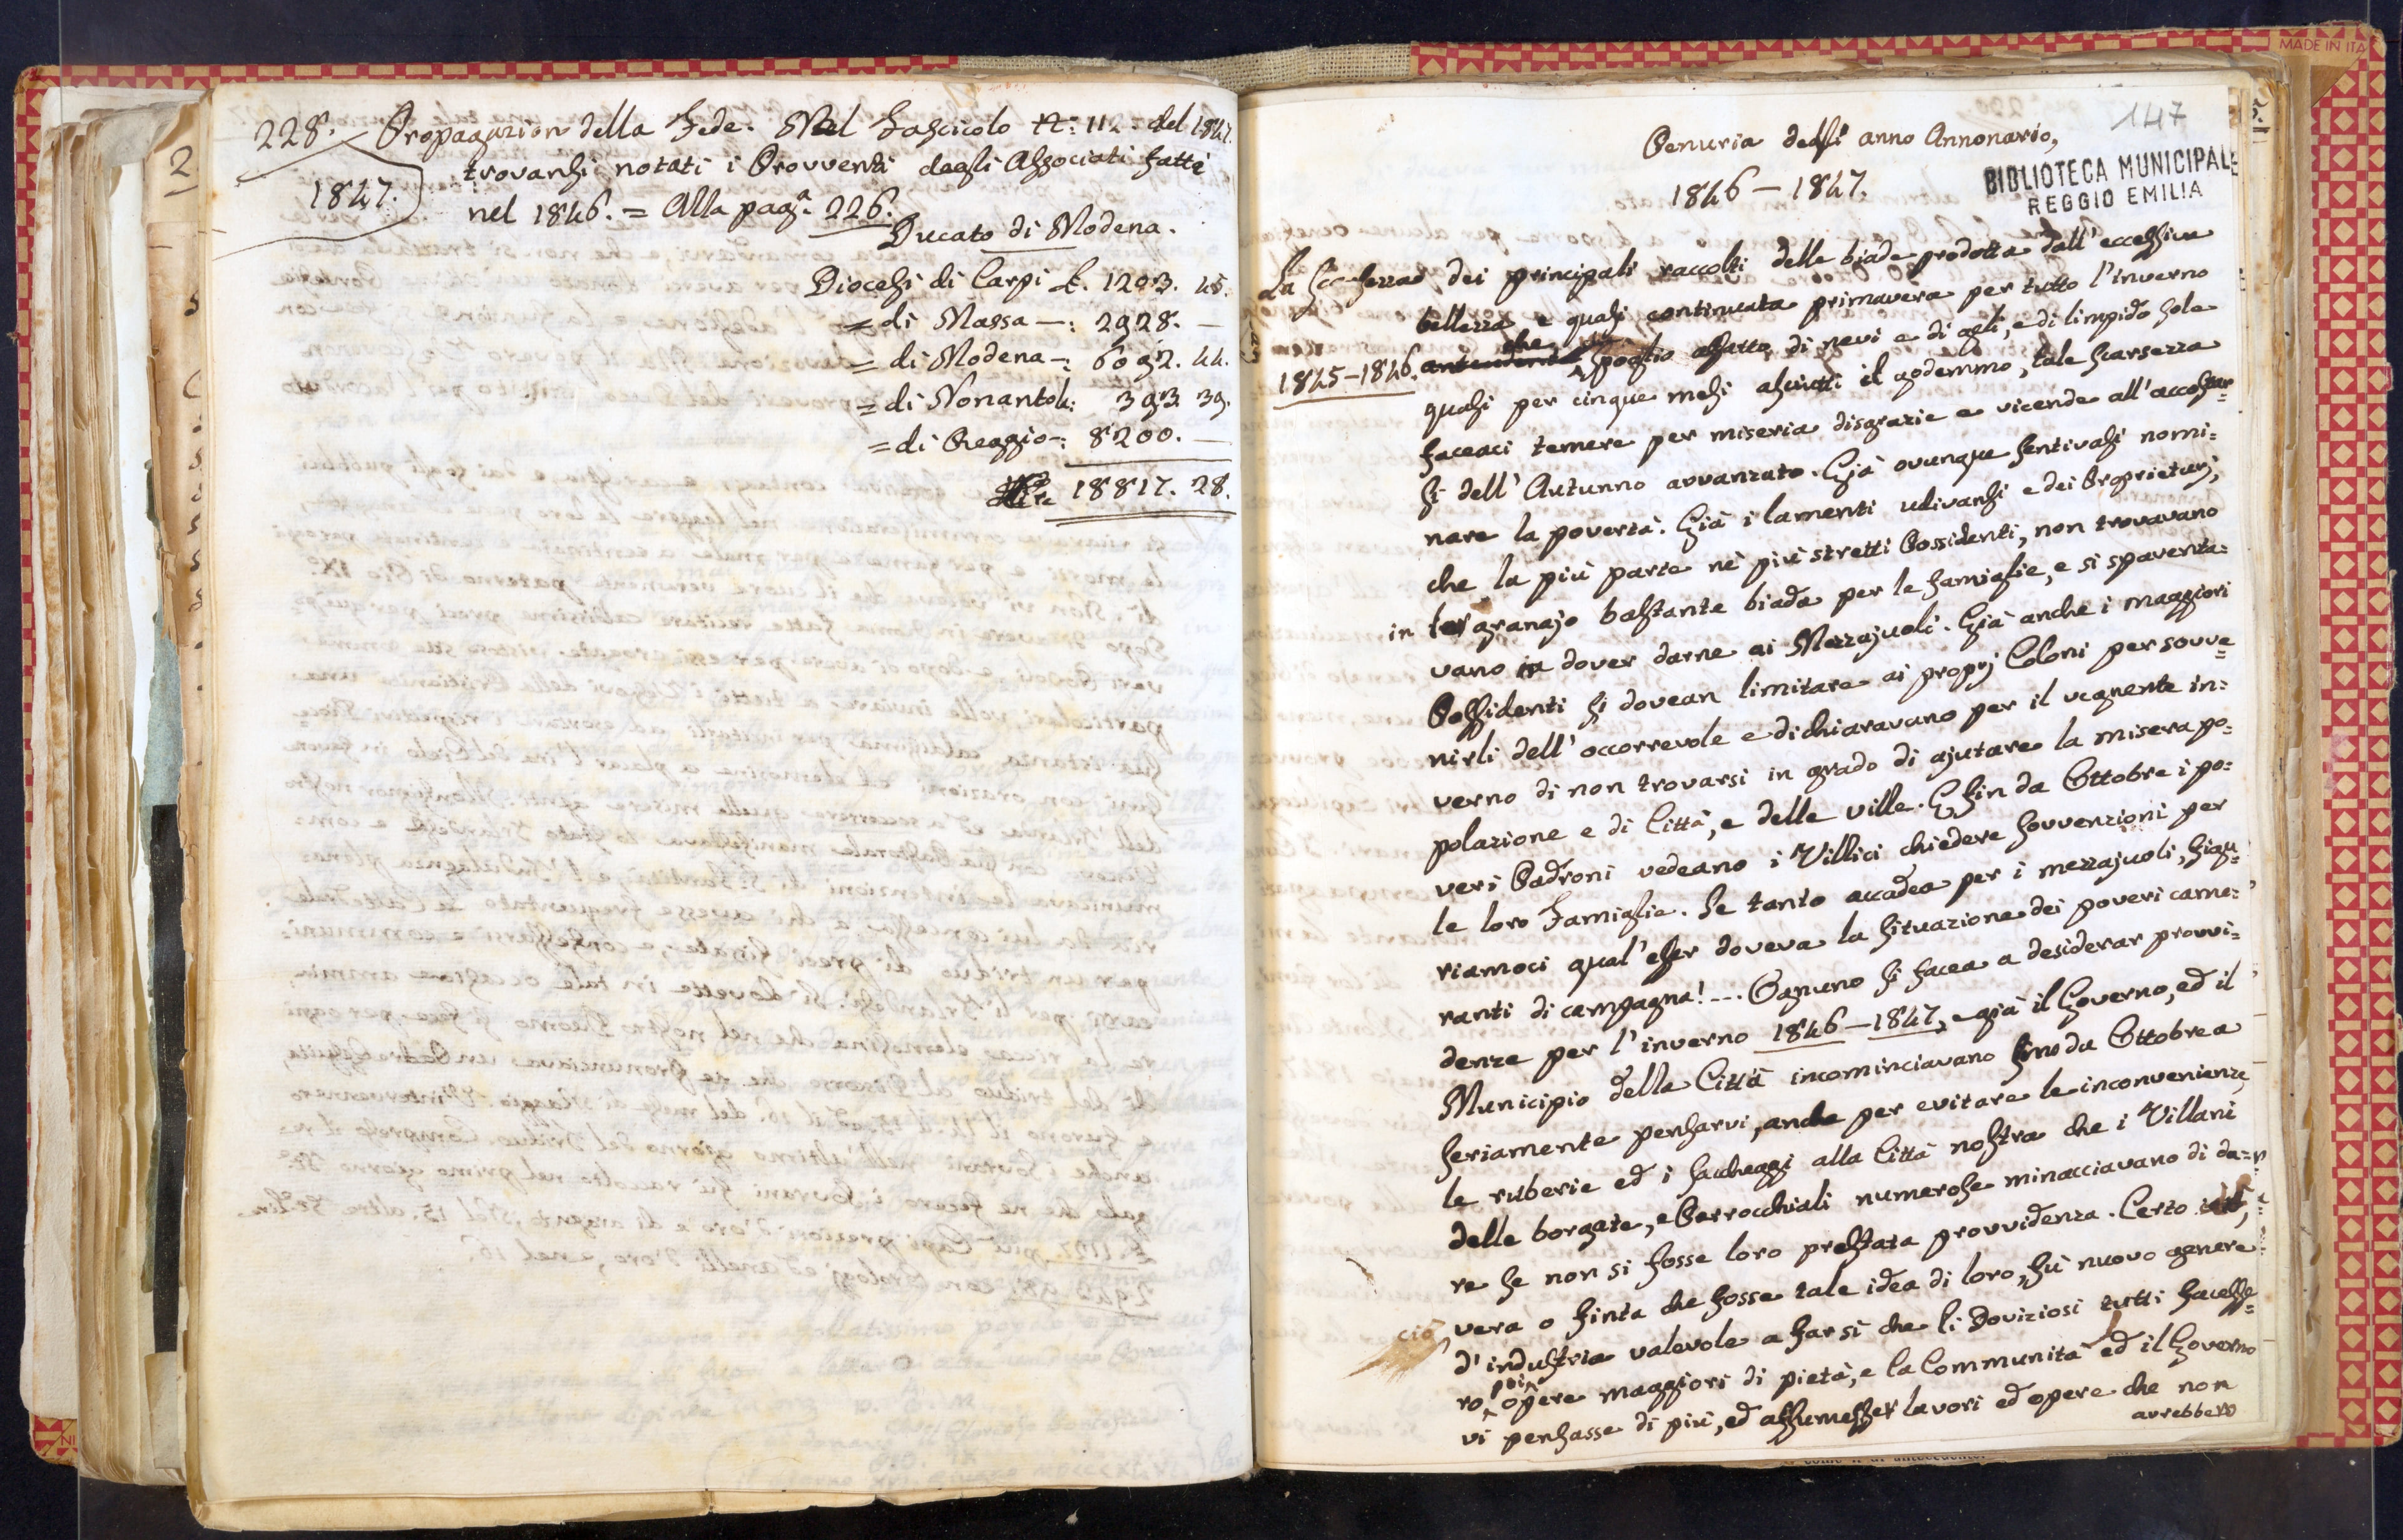 228. Propagazion della Fede. Nel Fascicolo N: 112. del 1847.
1847. trovansi notati i Provventi degli Associati fatti
nel 1846. = Alla pagª. 226.
Ducato di Modena.
Diocesi di Carpi £. 1203. 45.
= di Massa —: 2928. —
= di Modena —: 6092. 44.
= di Nonantola: 393. 39.
= di Reggio —: 8200. —
Lire 18817. 28.
147
Penuria dell' anno Annonario,
1846 — 1847.
BIBLIOTECA MUNICIPALE
REGGIO EMILIA
La scarsezza dei principali raccolti delle biade prodotta dall' eccessiva
bellezza e quasi continuata primavera per tutto l'inverno
1845-1846. che spoglio affatto di nevi e di geli, e di limpido sole
quasi per cinque mesi asciutti il godemmo, tale scarsezza
faceaci temere per miseria disgrazie e vicende all' accostar=
si dell' Autunno avvanzato. Già ovunque sentivasi nomi=
nare la povertà. Già i lamenti udivansi e dei Proprietarj,
che la più parte nè più stretti Possidenti, non trovavano
in granajo bastante biada per le famiglie, e si spaventa=
vano in dover darne ai Mezzajuoli. Già anche i maggiori
Possidenti si dovean limitare ai proprj Coloni per sovve=
nirli dell' occorrevole e dichiaravano per il vegnente in=
verno di non trovarsi in grado di ajutare la misera po=
polazione e di Città, e delle ville. E fin da Ottobre i po=
veri Padroni vedeano i Villici chiedere sovvenzioni per
le loro Famiglie. Se tanto accadea per i mezzajuoli, figu=
riamoci qual' esser doveva la situazione dei poveri came=
ranti di campagna! --- Ognuno si facea a desiderar provvi=
denze per l' inverno 1846 — 1847, e già il Governo, ed il
Municipio della Città incominciavano fino da Ottobre a
seriamente pensarvi, anche per evitare le inconvenienze
le ruberie ed i saccheggi alla Città nostra che i Villani
delle borgate, e Parrocchiali numerose minacciavano di da=
re se non si fosse loro prestata provvidenza. Certo
vera o finta che fosse tale idea di loro, fù nuovo genere
ciò d' industria valevole a far sì che li Doviziosi tutti facesse=
ro poi opere maggiori di pietà, e la Communità ed il Governo
vi pensasse di più, ed assumesse lavori ed opere che non
avrebbero